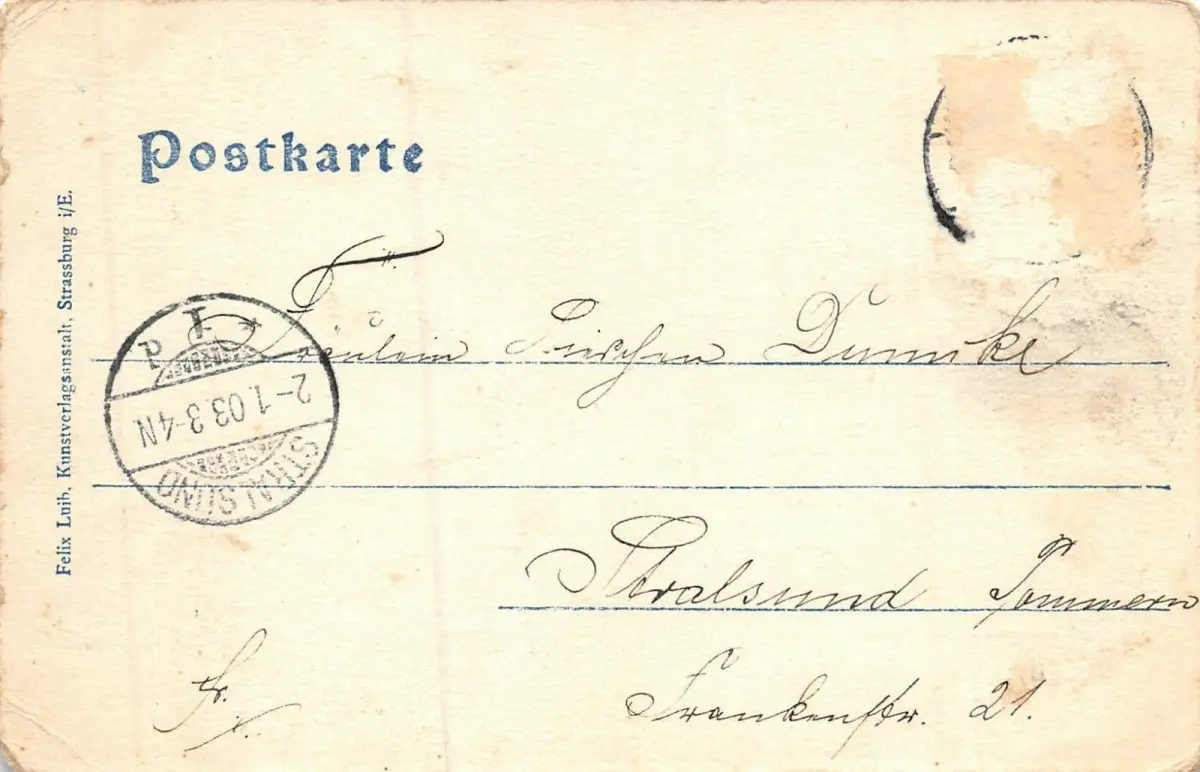 Postkarte
Felix Luib, Kunstverlagsanstalt, Strassburg i/E.
Fräulein Lieschen
STRALSUND
2-1.03.3-4N
Stralsund Pommern
Frankenstr. 21.
fr.